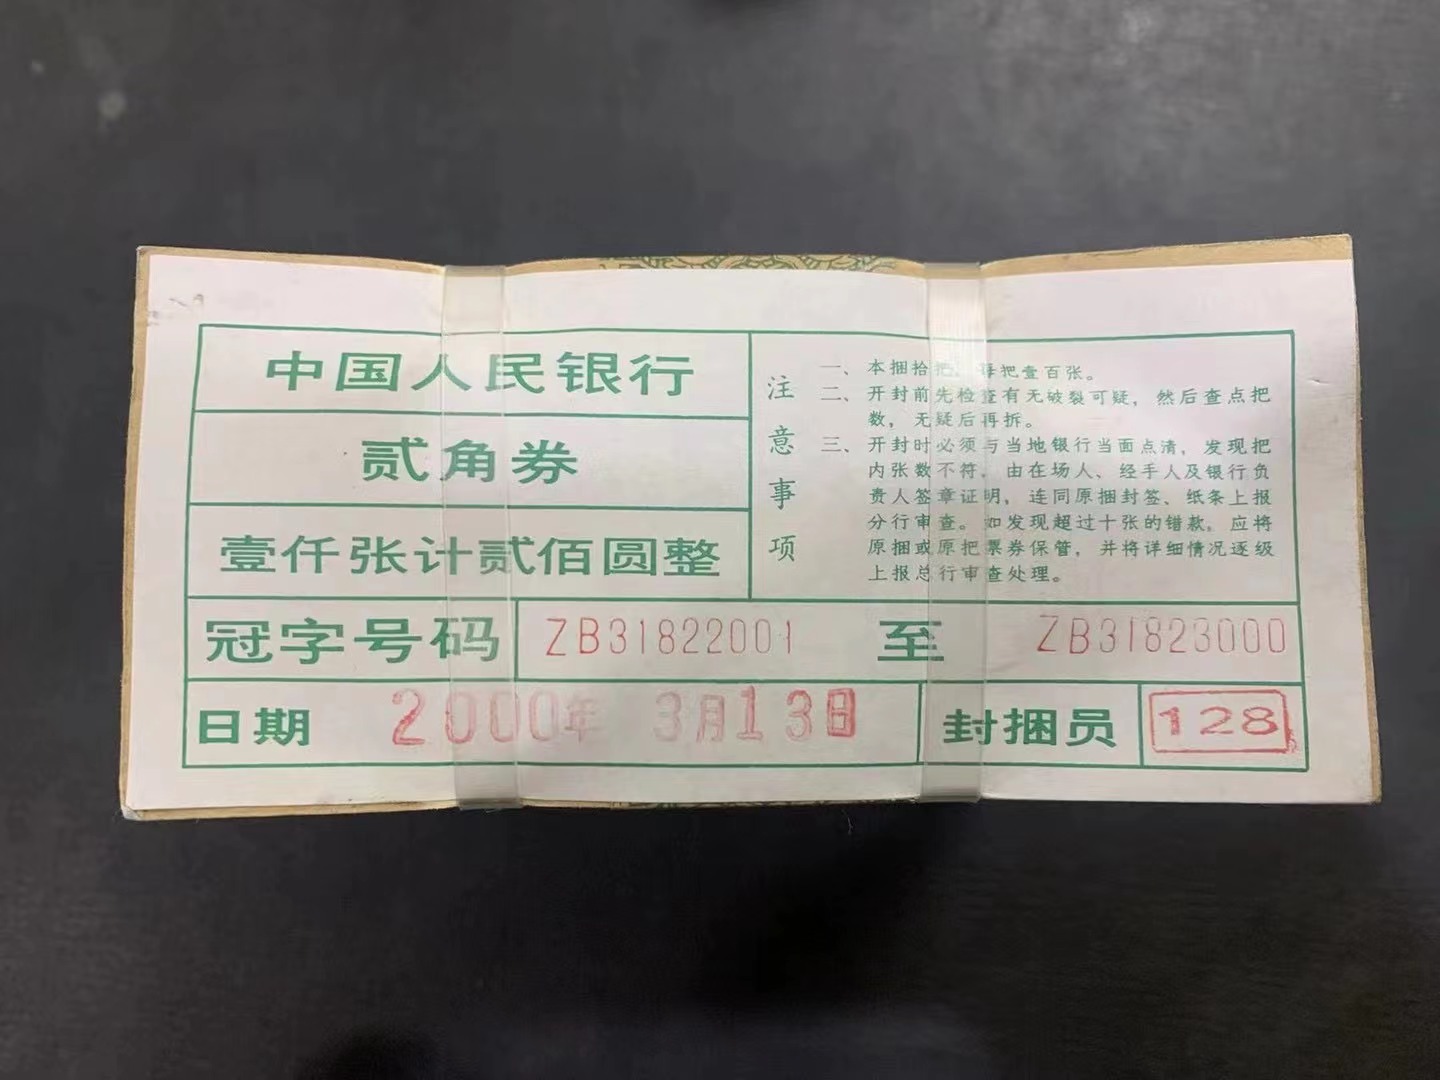 中国人民银行
贰角券
壹仟张计贰佰圆整
注意事项
一、本捆拾把，每把壹百张。
二、开封前先检查有无破裂可疑，然后查点把
数，无疑后再拆。
三、开封时必须与当地银行当面点清，发现把
内张数不符，由在场人、经手人及银行负
责人签章证明，连同原捆封签、纸条上报
分行审查。如发现超过十张的错款，应将
原捆或原把票券保管，并将详细情况逐级
上报总行审查处理。
冠字号码 ZB31822001 至 ZB31823000
日期 2000年 3月13日 封捆员 128